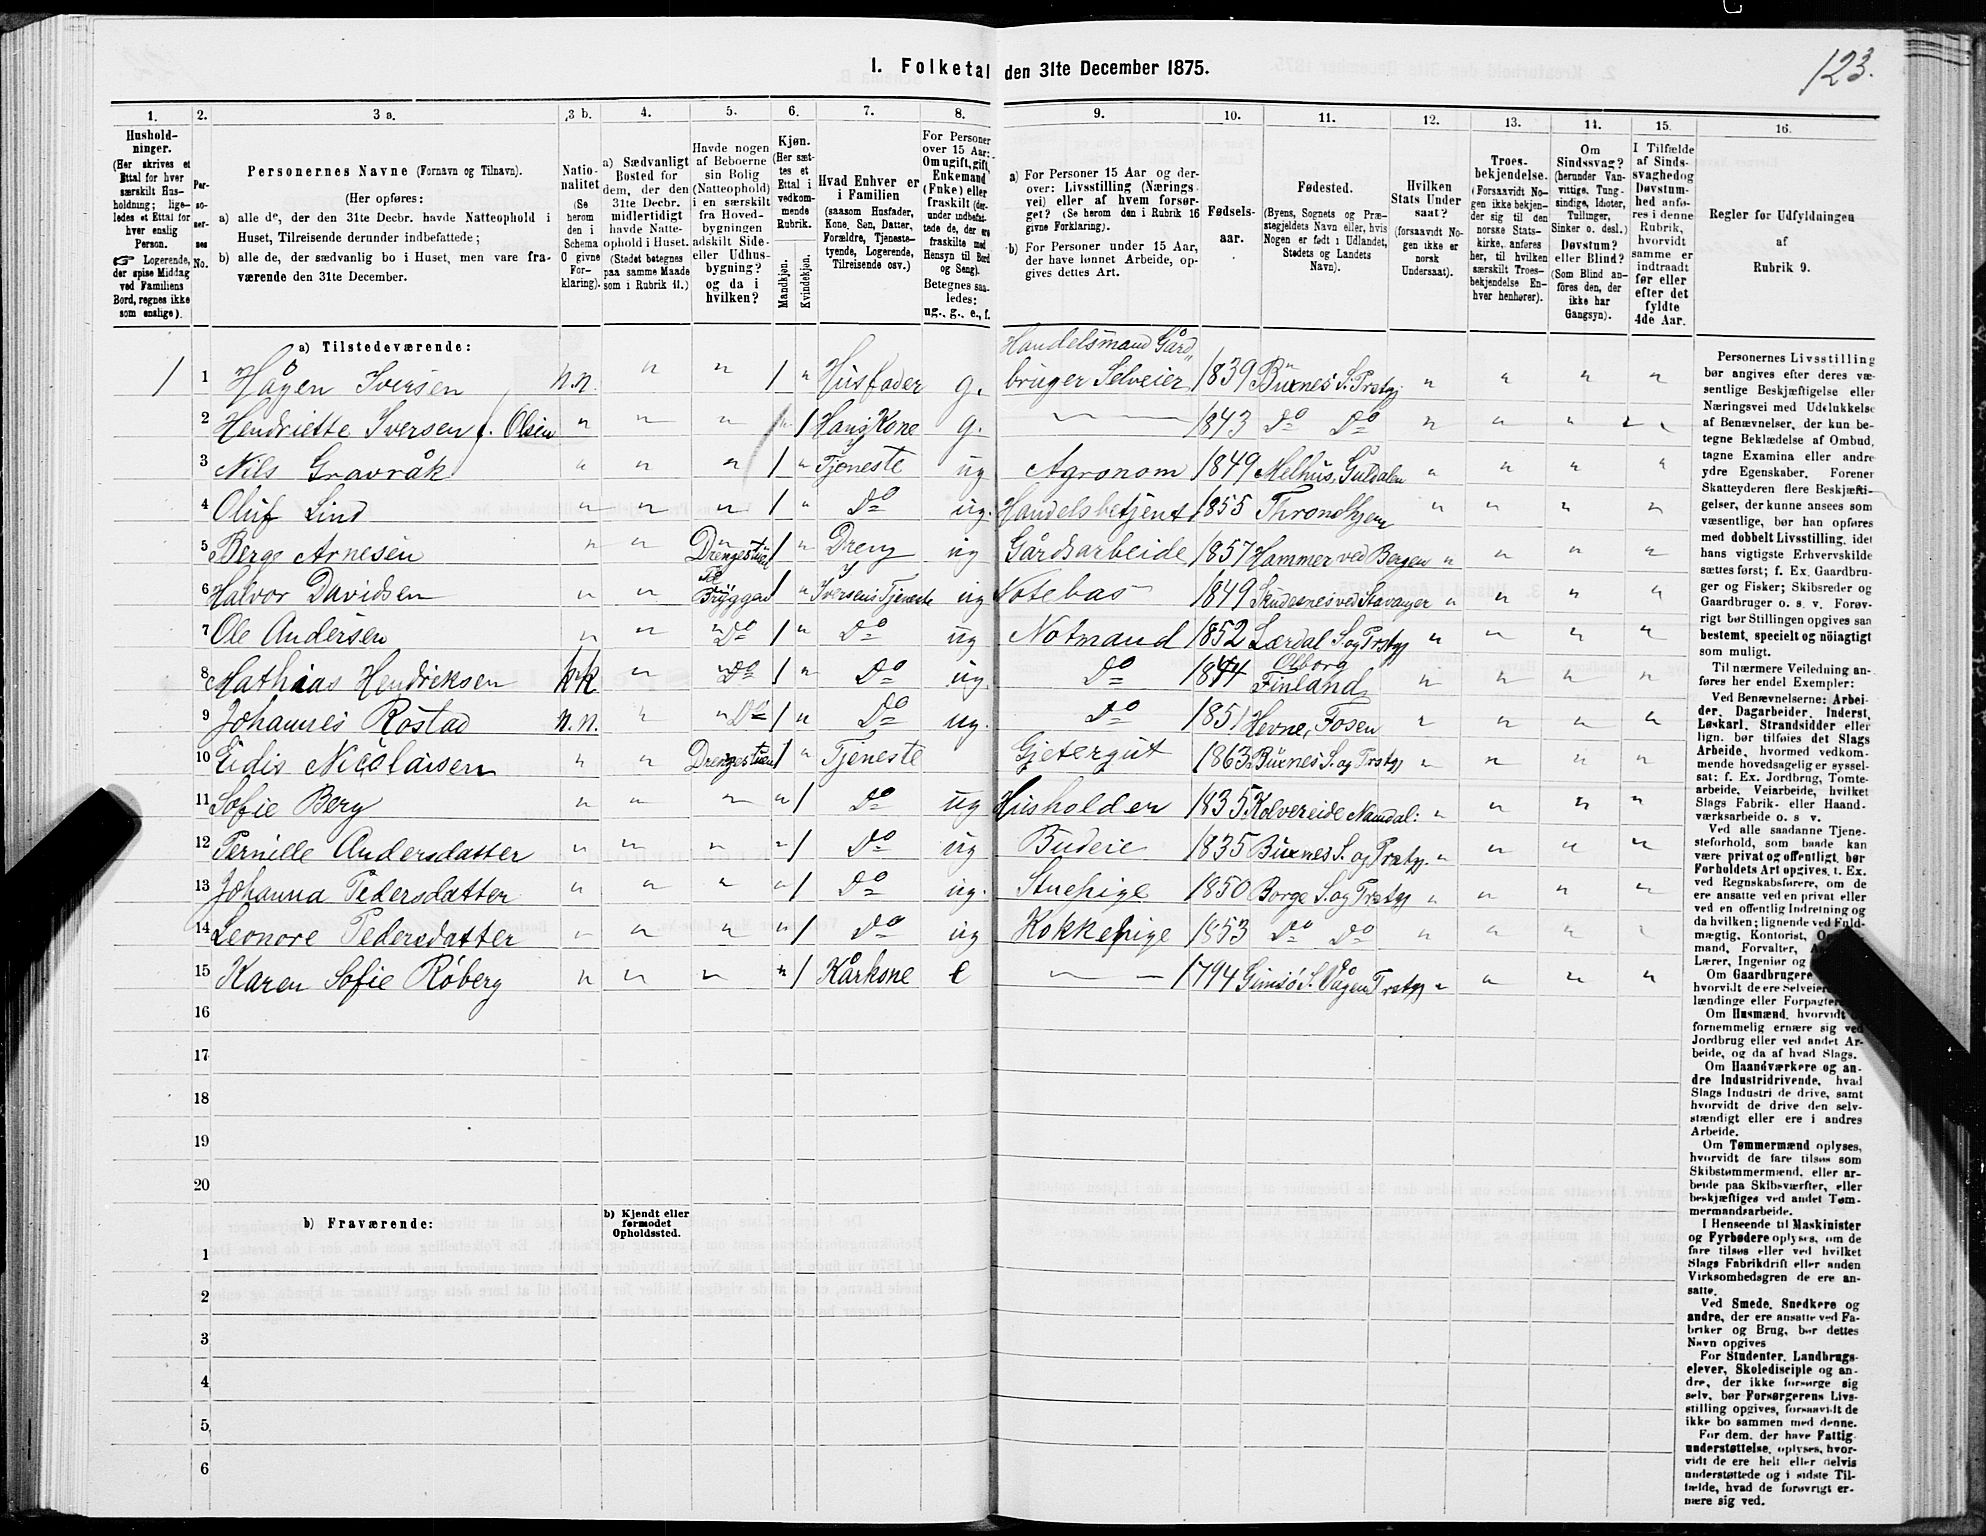 123.
1. Folketal den 31te December 1875.
1. 2. 3 a. 3 b. 4. 5. 6. 7. 8. 9. 10. 11. 12. 13. 14. 15. 16.
Hushold-
ninger.
(Her skrives et
Ettal for hver
særskilt Hus-
holdning; lige-
ledes et Ettal for
hver enslig
Person.
☞ Logerende,
der spise Middag
ved Familiens
Bord, regnes ikke
som enslige).
Per-
so-
ner-
nes
No.
Personernes Navne (Fornavn og Tilnavn).
(Her opføres:
a) alle de, der den 31te Decbr. havde Natteophold i
Huset, Tilreisende derunder indbefattede;
b) alle de, der sædvanlig bo i Huset, men vare fra-
værende den 31te December.
Natio-
nalitet
(Se
herom
den i
Schema
C givne
For-
klaring).
a) Sædvanligt
Bosted for
dem, der den
31te Decbr.
midlertidigt
havde Natte-
ophold i Huset.
(Stedet betegnes
paa samme Maade
som i Rubrik 11.)
Havde nogen
af Beboerne
sin Bolig
(Natteophold)
i en særskilt
fra Hoved-
bygningen
adskilt Side-
eller Udhus-
bygning?
og da i
hvilken?
Kjøn.
(Her sæt-
tes et
Ettal i
vedkom-
mende
Rubrik.
Mandkjøn.
Kvindekjøn.
Hvad Enhver er
i Familien
(saasom Husfader,
Kone, Søn, Datter,
Forældre, Tjeneste-
tyende, Logerende,
Tilreisende osv.)
For Personer
over 15 Aar:
Om ugift, gift,
Enkemand
(Enke) eller
fraskilt (der-
under indbefat-
tede de, der ere
fraskilte med
Hensyn til Bord
og Seng).
Betegnes saa-
ledes:
ug., g., e., f.
a) For Personer 15 Aar og der-
over: Livsstilling (Nærings-
vei) eller af hvem forsør-
get? (Se herom den i Rubrik 16
givne Forklaring).
b) For Personer under 15 Aar,
der have lønnet Arbeide, op-
gives dettes Art.
Fødsels-
aar.
Fødested.
(Byens, Sognets og Præ-
stegjeldets Navn eller, hvis
Nogen er født i Udlandet,
Stedets og Landets
Navn).
Hvilken
Stats Under
saat?
(forsaavidt No-
gen ikke er
norsk
Undersaat).
Troes-
bekjendelse.
(Forsaavidt No-
gen ikke bekjen-
der sig til den
norske Stats-
kirke, anføres
her, til hvilken
særskilt Troes-
bekjendelse En-
hver henhører).
Om
Sindssvag?
(herunder Van-
vittige, Tung-
sindige, Idioter,
Tullinger,
Sinker o. desl.)
Døvstum?
eller Blind?
(Som Blind an-
føres den, der
ikke har
Gangsyn).
I Tilfælde
af Sinds-
svaghed og
Døvstum-
hed anfø-
res i denne
Rubrik,
hvorvidt
samme er
indtraadt
før eller
efter det
fyldte
4de Aar.
Regler for Udfyldningen
af
Rubrik 9.
a) Tilstedeværende:
Handelsmand Gård
1 1 Hågen Iversen n.n. " " 1 " Husfader g. bruger Selveier 1839 Buxnes S. Prstgj " " " "
2 Hendriette Iversen f. Olsen " " " " 1 Hans Kone g. — 1843 Do Do " " " "
3 Nils Gravråk " " " 1 " Tjeneste ug Agronom 1849 Melhus, Guldalen " " " "
4 Oluf Lind " " " 1 " Do ug. Handelsbetjent 1855 Throndhjem " " " "
5 Berge Arnesen " " Drengestuen 1 " Dreng ug Gårdsarbeide 1857 Hammer ved Bergen " " " "
6 Halvor Davidsen " " Bryggen 1 " Iversens Tjeneste ug Notebas 1849 Skudesnes ved Stavanger " " " "
7 Ole Andersen " " Do 1 " Do ug Notmand 1852 Lærdal S. og Prstgj " " " "
8 Mathias Hendriksen kk " Do 1 " Do ug. Do 1844 Finland " " " "
9 Johannes Rostad n.n. " Do 1 " Do ug. Do 1851 Hevne, Fosen " " " "
10 Eidis Nicolaisen " " Drengestuen 1 " Tjeneste Gjetergut 1863 Buxnes S. og Prstgj " " " "
11 Sofie Berg " " " " 1 Do ug Husholder 1835 Kolvereide Namdal: " " " "
12 Pernille Andersdatter " " " " 1 Do ug Budeie 1835 Buxnes S. og Prstgj. " " " "
13 Johanna Pedersdatter " " " " 1 Do ug. Stuepige 1850 Borge S. og Prstgj " " " "
14 Leonore Pedersdatter " " " " 1 Do ug Kokkepige 1853 Do Do " " " "
15 Karen Sofie Røberg " " " " 1 Kårkone e — 1794 Gimsø S. Vågen Prstgj " " " "
16
17
18
19
20
b) Fraværende:
b) Kjendt eller
formodet
Opholdssted.
1
2
3
4
5
6
Personernes Livsstilling
bør angives efter deres væ-
sentlige Beskjæftigelse eller
Næringsvei med Udelukkelse
af Benævnelser, der kun be-
tegne Beklædelse af Ombud,
tagne Examina eller andre
ydre Egenskaber. Forener
Skatteyderen flere Beskjæfti-
gelser, der kunne ansees som
væsentlige, bør han opføres
med dobbelt Livsstilling, idet
hans vigtigste Erhvervskilde
sættes først; f. Ex. Gaardbru-
ger og Fisker; Skibsreder og
Gaardbruger o. s. v. Forøv-
rigt bør Stillingen opgives saa
bestemt, specielt og nöiagtigt
som muligt.
Til nærmere Veiledning an-
føres her endel Exempler:
Ved Benævnelserne: Arbei-
der, Dagarbeider, Inderst,
Løskarl, Strandsidder eller
lign. bør tilføies det Slags
Arbeide, hvormed vedkom-
mende hovedsagelig er syssel-
sat; f. Ex. Jordbrug, Tomte-
arbeide, Veiarbeide, hvilket
Slags Fabrik- eller Haand-
værksarbeide o. s v.
Ved alle saadanne Tjene-
steforhold, som baade kan
være privat og offentligt, bør
Forholdets Art opgives, f. Ex.
ved Regnskabsførere, om de
ere ansatte ved en privat eller
ved en offentlig Indretning og
da hvilken; lignende ved Fuld-
mægtig, Kontorist,
mand, Forvalter,
Lærer, Ingeniør og
Om Gaardbrugere
hvorvidt de ere Selveiere
lændinge eller Forpagtere
Om Husmænd, hvorvidt
fornemmelig ernære sig ved
Jordbrug eller ved andet Ar-
beide, og da af hvad Slags.
Om Haandværkere og an-
dre Industridrivende, hvad
Slags Industri de drive, samt
hvorvidt de drive den selv-
stændigt eller ere i andres
Arbeide.
Om Tømmermænd oplyses,
hvorvidt de fare tilsøs som
Skibstømmermænd, eller ar-
beide paa Skibsværfter, eller
beskjæftiges ved andet Tøm-
mermandsarbeide.
I Henseende til Maskinister
og Fyrbødere oplyses, om de
fare tilsøs eller ved hvilket
Slags Fabrikdrift eller anden
Virksomhedsgren de ere an-
satte.
Ved Smede, Snedkere og
andre, der ere ansatte ved Fa-
briker og Brug, bør dettes
Navn opgives
For Studenter, Landbrugs-
elever, Skoledisciple og an-
dre, der ikke forsørge sig
selv, bør Forsørgerens Livs-
stilling opgives, forsaavidt de
ikke bo sammen med denne.
For dem, der have Fattig-
understøttelse, oplyses, hvor-
vidt de ere helt eller delvis
understøttede og i sidste Til-
fælde, hvad de forøvrigt er-
nære sig ved.